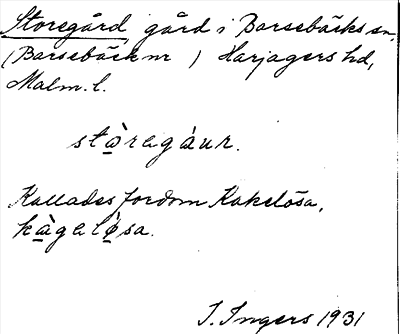 Storegård, gård i Barsebäcks sn,
(Barsebäck nr ) Harjagers hd,
Malm. l.
stɑ̀ragáur.
Kallades fordom Kakelösa,
kàgalø̀sa.
I. Ingers 1931